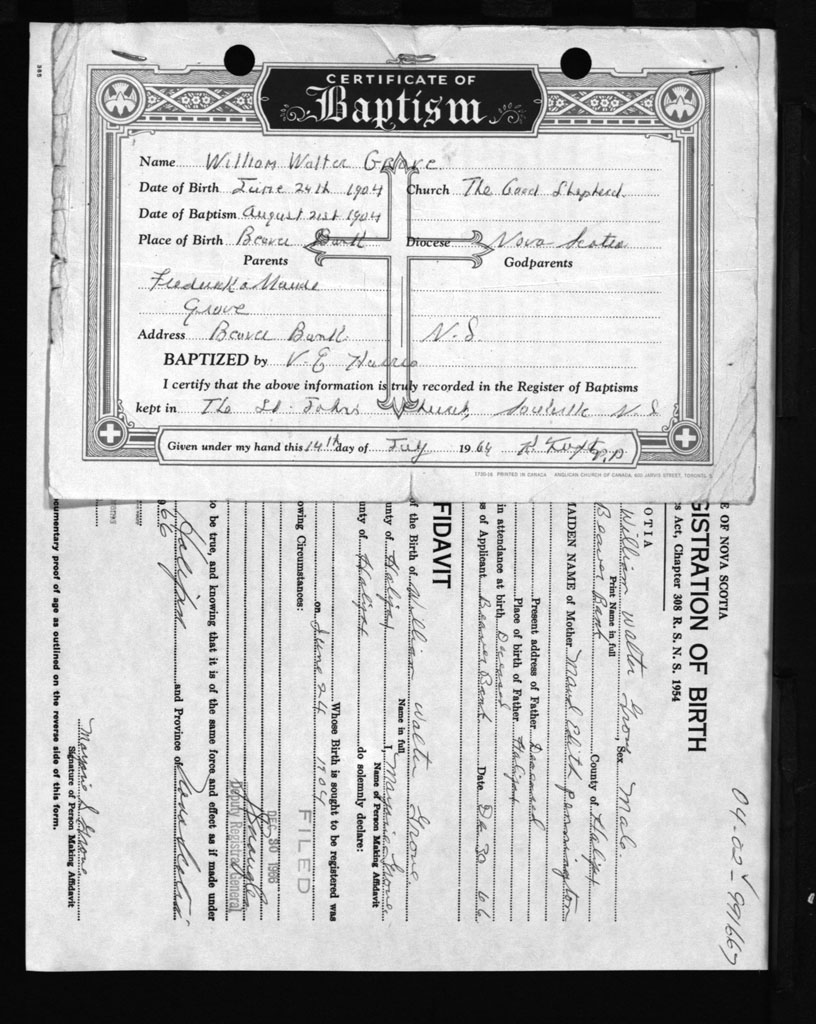 365
CERTIFICATE OF
Baptism
Name William Walter Grove
Date of Birth June 24th 1904 Church The Good Shepherd
Date of Baptism August 21st 1904
Place of Birth Beaver Bank Diocese Nova Scotia
Parents Godparents
Frederick & Maude
Grove
Address Beaver Bank N.S.
BAPTIZED by V. E. Harris
I certify that the above information is truly recorded in the Register of Baptisms
kept in The St. John's Church, Sackville N.S
Given under my hand this 14th day of July 1964
PRINTED IN CANADA ANGLICAN CHURCH OF CANADA, 600 JARVIS STREET, TORONTO
04-02-991667
E OF NOVA SCOTIA
GISTRATION OF BIRTH
s Act, Chapter 308 R. S. N. S. 1954
OTIA
William Walter Grove, Sex Male.
Print Name in full
Beaver Bank County of Halifax
MAIDEN NAME of Mother Maud Edith Pennington
Present address of Father Deceased
Place of birth of Father Halifax
in attendance at birth Deceased
s of Applicant Beaver Bank Date Dec 30 66
FIDAVIT
of the Birth of William Walter Grove
Name in full
unty of Halifax I, Marjorie Grove
Name of Person Making Affidavit
unty of Halifax do solemnly declare:
Whose Birth is sought to be registered was
on June 24 1904
owing Circumstances:
FILED
DEC 30 1966
Deputy Registrar General
o be true, and knowing that it is of the same force and effect as if made under
Halifax and Province of Nova Scotia
966
Marjorie S. Grove
Signature of Person Making Affidavit
cumentary proof of age as outlined on the reverse side of this form.